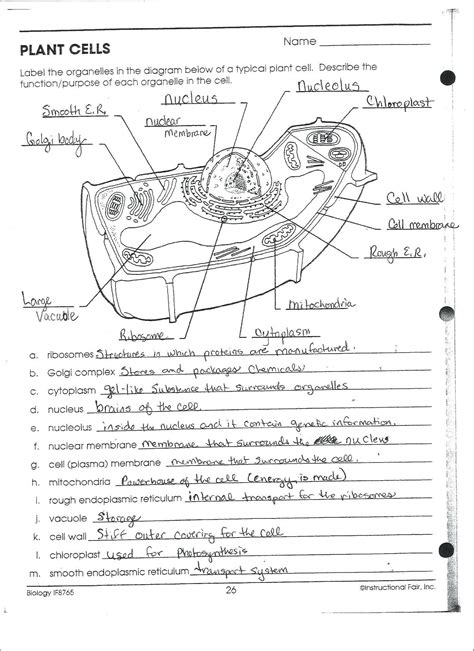 PLANT CELLS
Name
Label the organelles in the diagram below of a typical plant cell. Describe the
function/purpose of each organelle in the cell.
Nucleus
Nucleolus
Smooth E.R.
Chloroplast
nuclear
membrane
Golgi body
Cell wall
Cell membrane
Rough E.R.
Large
Vacuole
Mitochondria
Ribosome
Cytoplasm
a. ribosomes Structures in which proteins are manufactured.
b. Golgi complex Stores and packages Chemicals
c. cytoplasm gel-like Substance that surrounds organelles
d. nucleus brains of the cell.
e. nucleolus inside the nucleus and it contain genetic information.
f. nuclear membrane membrane that surrounds the nucleus
g. cell (plasma) membrane membrane that surrounds the cell.
h. mitochondria Powerhouse of the cell (energy is made)
i. rough endoplasmic reticulum internal transport for the ribosomes
j. vacuole Storage
k. cell wall Stiff outer covering for the cell
l. chloroplast used for Photosynthesis
m. smooth endoplasmic reticulum transport system
Biology IF8765
26
©Instructional Fair, Inc.